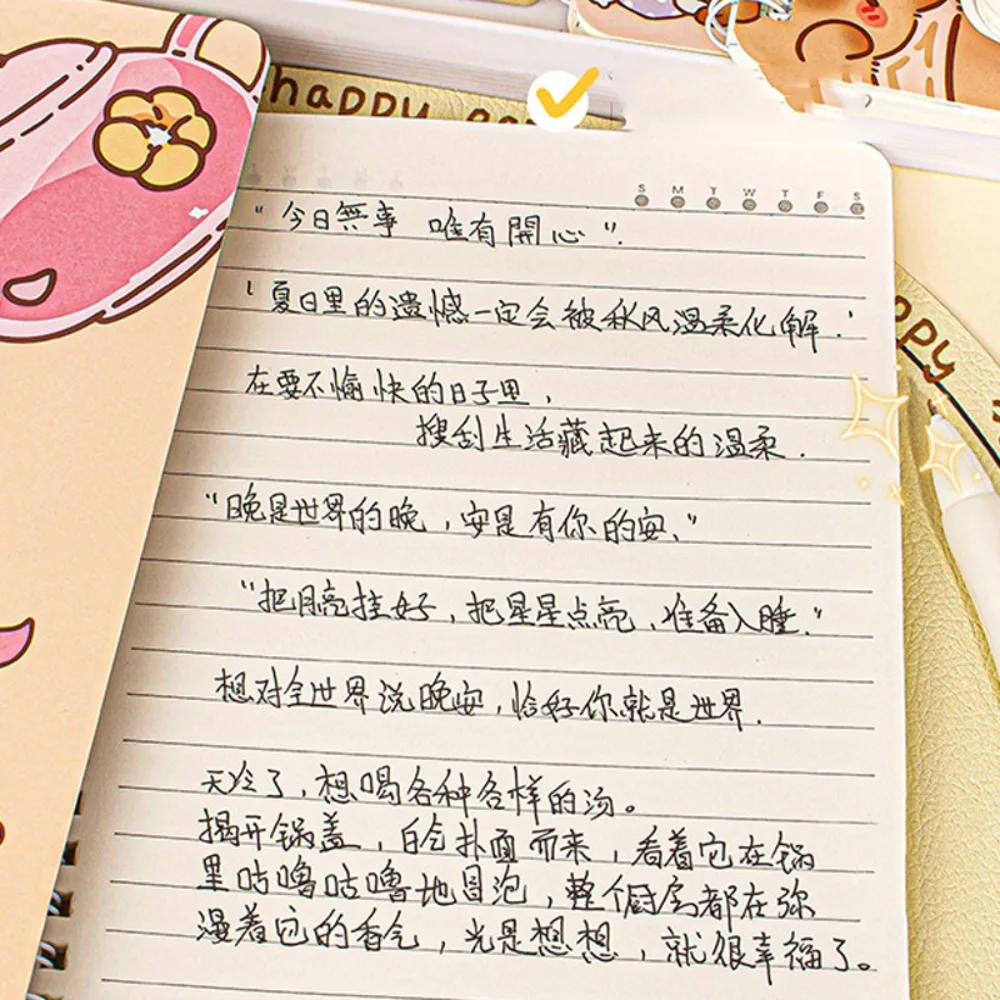 happy
S M T W T F S
“今日無事 唯有開心”.
‘夏日里的遗憾一定会被秋风温柔化解.’
在要不愉快的日子里,
搜刮生活藏起来的温柔.
“晚是世界的晚,安是有你的安.”
“把月亮挂好,把星星点亮,准备入睡.”
想对全世界说晚安,恰好你就是世界.
天冷了,想喝各种各样的汤。
揭开锅盖,白气扑面而来,看着它在锅
里咕噜咕噜地冒泡,整个厨房都在弥
漫着它的香气,光是想想,就很幸福了。
ppy